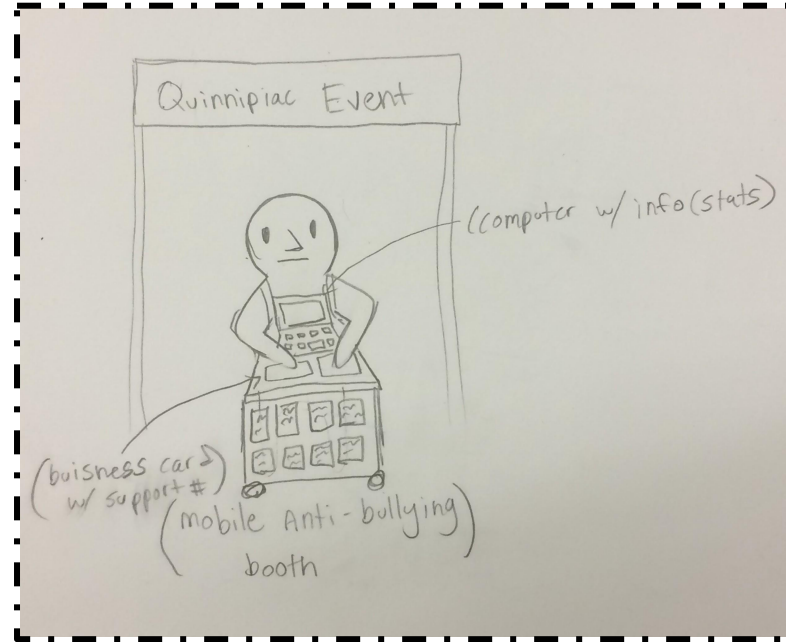 Quinnipiac Event
((computer w/ info (stats)
(buisness card)
w/ support #
(mobile Anti-bullying)
booth